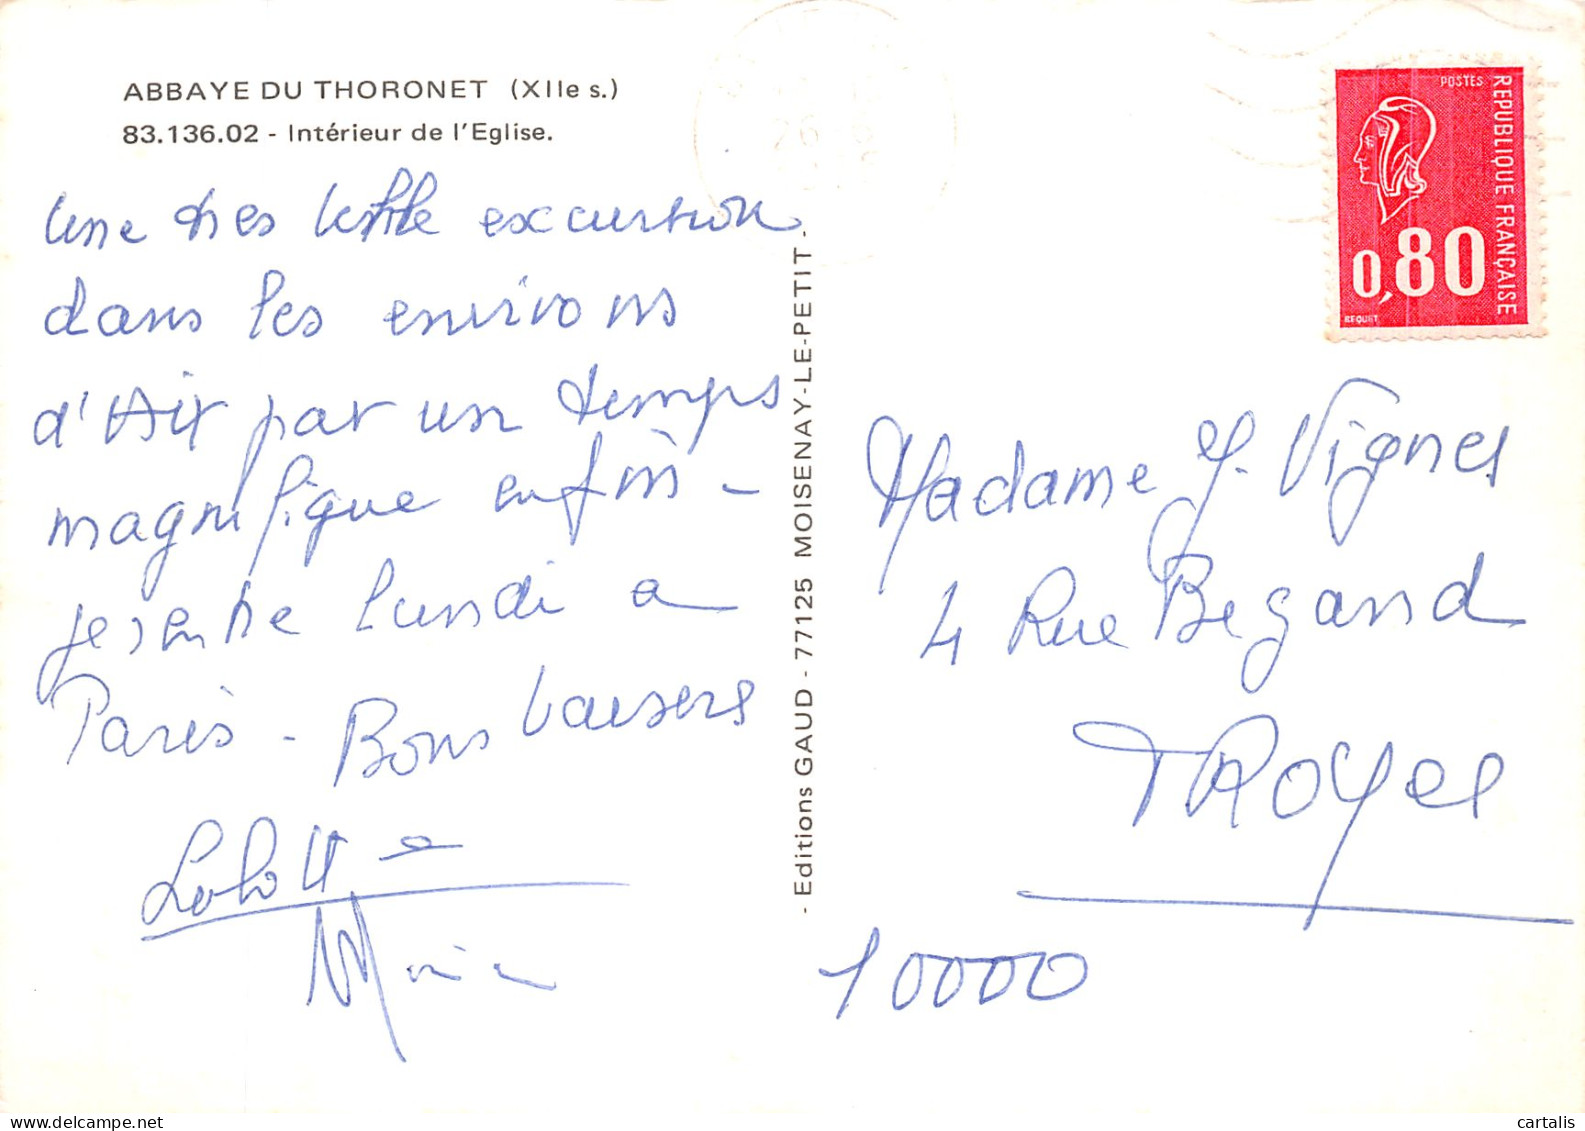 ABBAYE DU THORONET (XIIe s.)
83.136.02 - Intérieur de l'Eglise.
Une très belle excursion
dans les environs
d'Aix par un temps
magnifique enfin -
je rentre lundi a
Paris - Bons baisers
Lolotte
- Editions GAUD - 77125 MOISENAY-LE-PETIT -
POSTES
REPUBLIQUE FRANÇAISE
0,80
BEQUET
26
Madame J. Vignes
4 Rue Begand
TROYES
10000
cartalis